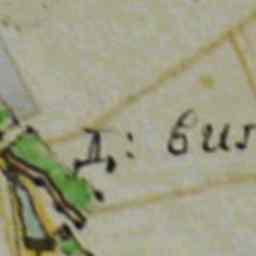 Д: вил